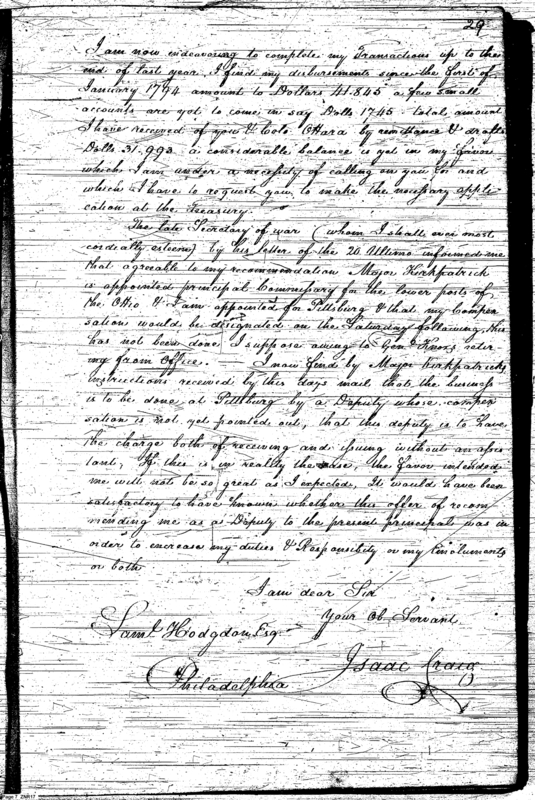 29
I am now endeavoring to complete my Transactions up to the
end of last year. I find my disbursements since the first of
January 1794 amount to Dollars 41.845 a few small
accounts are yet to come in say Dolls 1745 - total amount
I have received of you & Colo. OHara by remittance & drafts
Dolls 31.993 a considerable balance is yet in my favor
which I am under a necessity of calling on you for and
which I have to request you to make the necessary appli-
cation at the Treasury.
The late Secretary of war (whom I shall ever most
cordially esteem) by his letter of the 20 Ultimo informed me
that agreeable to my recommendation Major Kirkpatrick
is appointed principal Commissary for the lower posts of
the Ohio & I am appointed for Pittsburg & that my Compen
sation would be designated on the Saturday following, this
has not been done I suppose owing to Genl. Knoxs retir
ing from Office. I now find by Major Kirkpatricks
instructions received by this days mail that the business
is to be done at Pittsburg by a Deputy whose compen
sation is not yet pointed out, that this deputy is to have
the charge both of receiving and issuing without an assis
tant, If this is in reality the case, the favor intended
me will not be so great as I expected, It would have been
satisfactory to have known whether this offer of recom
mending me as a Deputy to the present principal was in
order to increase my duties & Responsibity or my Emoluments
or both
I am dear Sir
Your Ob. Servant
Saml. Hodgdon Esq.
Isaac Craig
Philadelphia